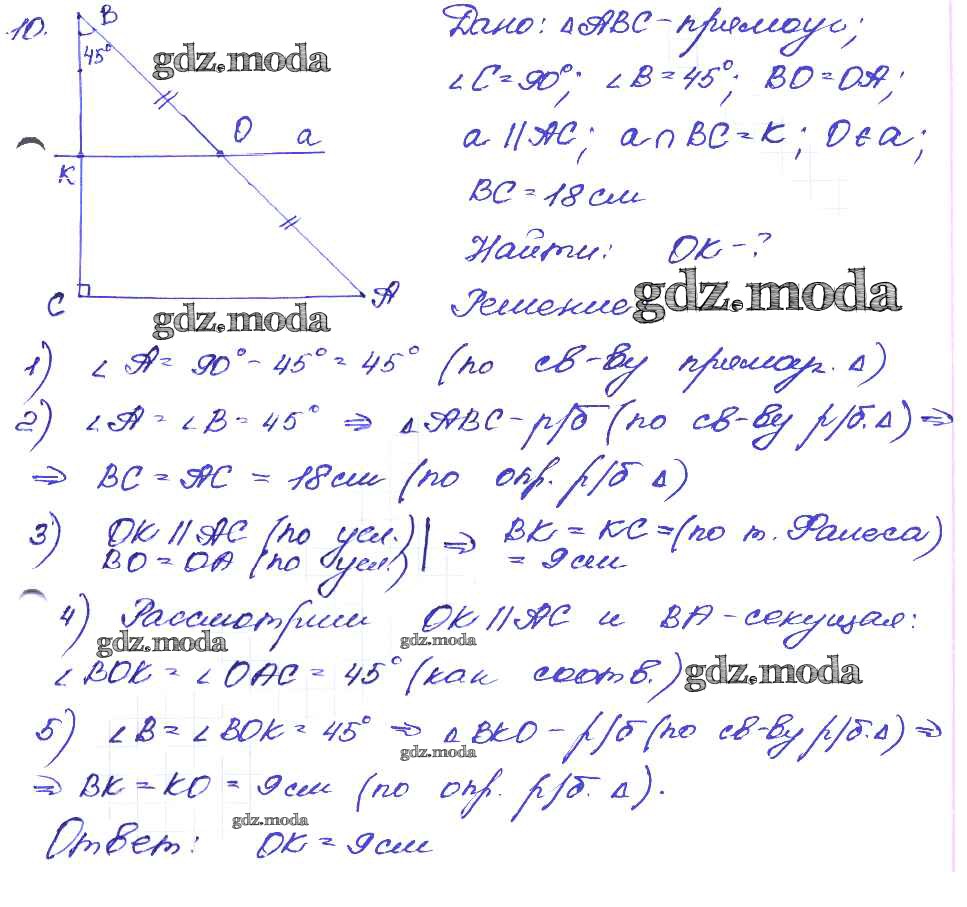 10.
B
45°
O
a
K
C
A
gdz.moda
gdz.moda
Дано: △ABC - прямоуг;
∠C = 90°; ∠B = 45°; BO = OA;
a || AC; a ∩ BC = K; O ∈ a;
BC = 18 см
Найти: OK - ?
Решение gdz.moda
1) ∠A = 90° - 45° = 45° (по св-ву прямоуг. △)
2) ∠A = ∠B = 45° ⇒ △ABC - р/б (по св-ву р/б. △) ⇒
⇒ BC = AC = 18 см (по опр. р/б △)
3) OK || AC (по усл.) | ⇒ BK = KC = (по т. Фалеса)
BO = OA (по усл.) | = 9 см
4) Рассмотрим OK || AC и BA - секущая:
gdz.moda gdz.moda
∠BOK = ∠OAC = 45° (как соотв.) gdz.moda
5) ∠B = ∠BOK = 45° ⇒ △BKO - р/б (по св-ву р/б. △) ⇒
gdz.moda
⇒ BK = KO = 9 см (по опр. р/б. △).
gdz.moda
Ответ: OK = 9 см